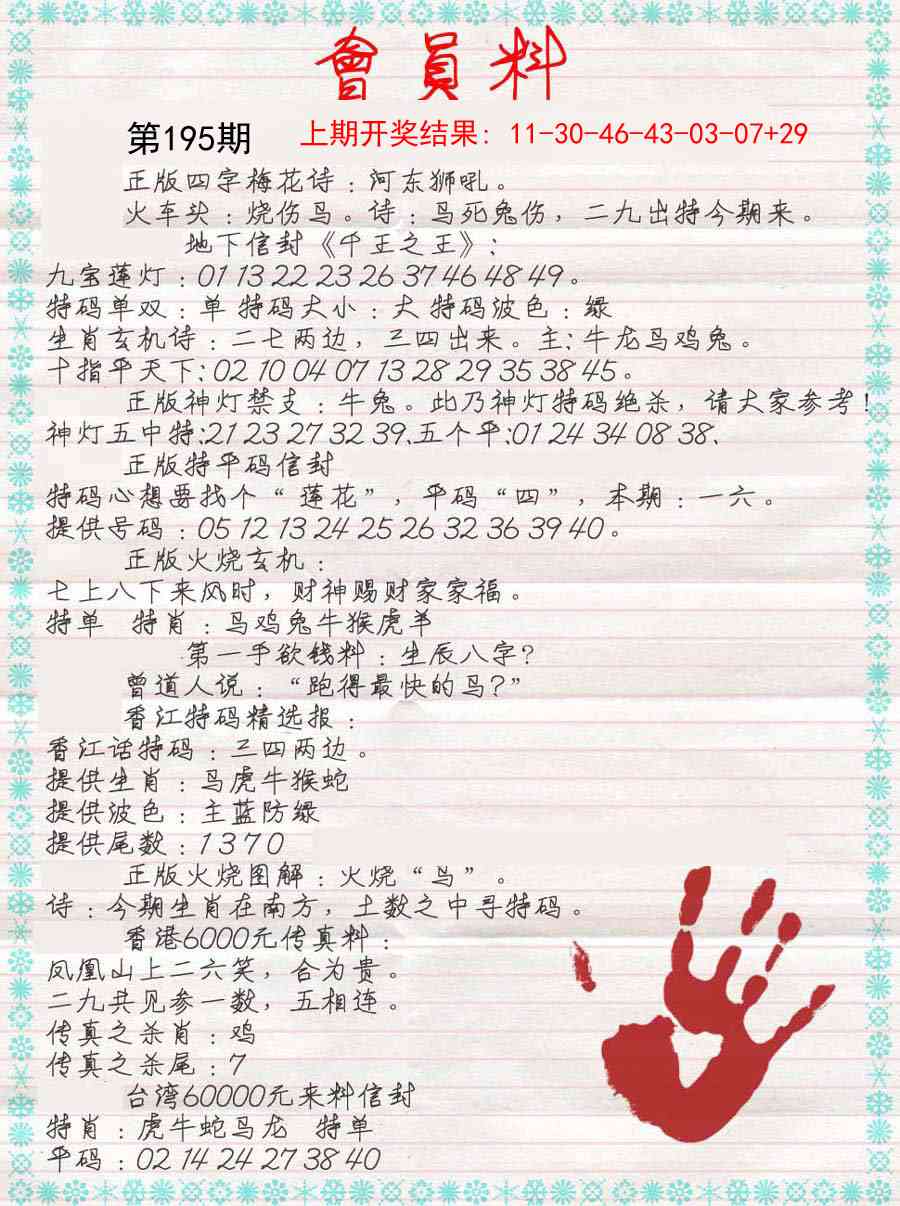 會員料
第195期 上期开奖结果：11-30-46-43-03-07+29
正版四字梅花诗：河东狮吼。
火车头：烧伤鸟。诗：鸟死兔伤，二九出特今期来。
地下信封《千王之王》：
九宝莲灯：01 13 22 23 26 37 46 48 49。
特码单双：单 特码大小：大 特码波色：绿
生肖玄机诗：二七两边，三四出来。主：牛龙鸟鸡兔。
十指平天下：02 10 04 07 13 28 29 35 38 45。
正版神灯禁支：牛兔。此乃神灯特码绝杀，请大家参考！
神灯五中特：21 23 27 32 39、五个平：01 24 34 08 38、
正版特平码信封
特码心想要找个“莲花”，平码“四”，本期：一六。
提供号码：05 12 13 24 25 26 32 36 39 40。
正版火烧玄机：
七上八下来风时，财神赐财家家福。
特单 特肖：鸟鸡兔牛猴虎羊
第一手欲钱料：生辰八字？
曾道人说：“跑得最快的鸟？”
香江特码精选报：
香江话特码：三四两边。
提供生肖：鸟虎牛猴蛇
提供波色：主蓝防绿
提供尾数：1 3 7 0
正版火烧图解：火烧“鸟”。
诗：今期生肖在南方，土数之中寻特码。
香港6000元传真料：
凤凰山上二六笑，合为贵。
二九共见参一数，五相连。
传真之杀肖：鸡
传真之杀尾：7
台湾60000元来料信封
特肖：虎牛蛇鸟龙 特单
平码：02 14 24 27 38 40